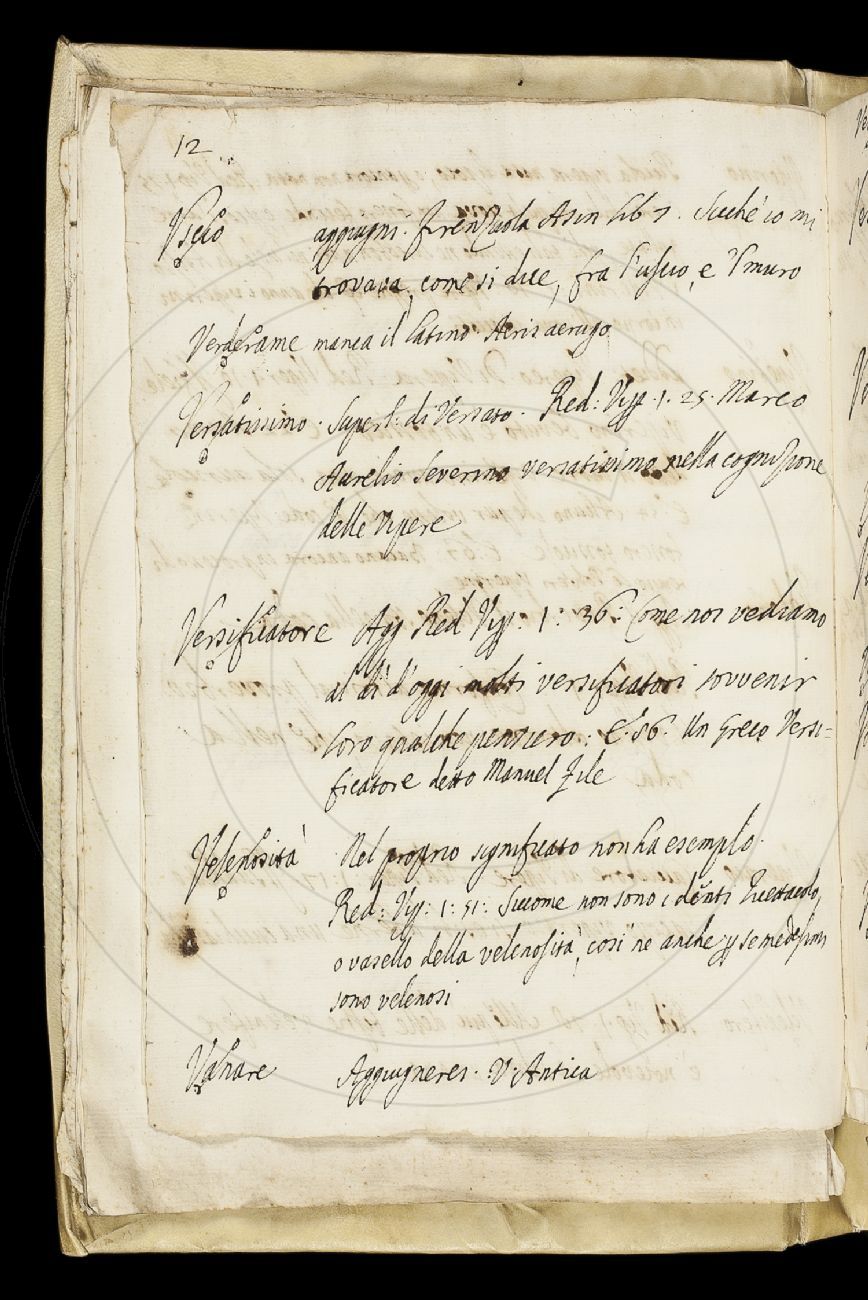 12
Uscio aggiugni. Firenzuola Asin lib 7. Sicché io mi
trovava, come si dice, fra l'uscio, e 'l muro
Verderame manca il latino. Aeris aerugo
Versatissimo. Superl: di Versato. Red: Vip. 1. 25. Marco
Aurelio Severino versatissimo nella cognizione
delle Vipere
Versificatore Agg Red Vip: 1: 36: Come noi vediamo
al dì d'oggi molti versificatori sovvenir
loro qualche pensiero: E. 86. Un Greco Versi=
ficatore detto Manuel File
Velenosità Nel proprio significato non ha esempio.
Red: Vip: 1: 51: Siccome non sono i denti ricettacolo,
o vasello della velenosità, così ne anche p se medesimi
sono velenosi
Aggiugneres. V. Antica